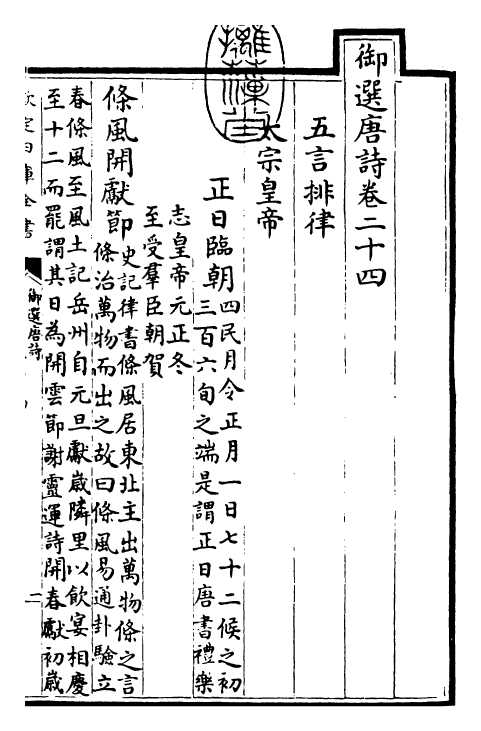 御選唐詩卷二十四
五言排律
太宗皇帝
正日臨朝四民月令正月一日七十二候之初
三百六旬之端是謂正日唐書禮樂
志皇帝元正冬
至受羣臣朝賀
條風開獻節史記律書條風居東北主出萬物條之言
條治萬物而出之故曰條風易通卦驗立
春條風至風土記岳州自元旦獻嵗隣里以飲宴相慶
至十二而罷謂其日為開雲節謝靈運詩開春獻初嵗
欽定四庫全書
御選唐詩